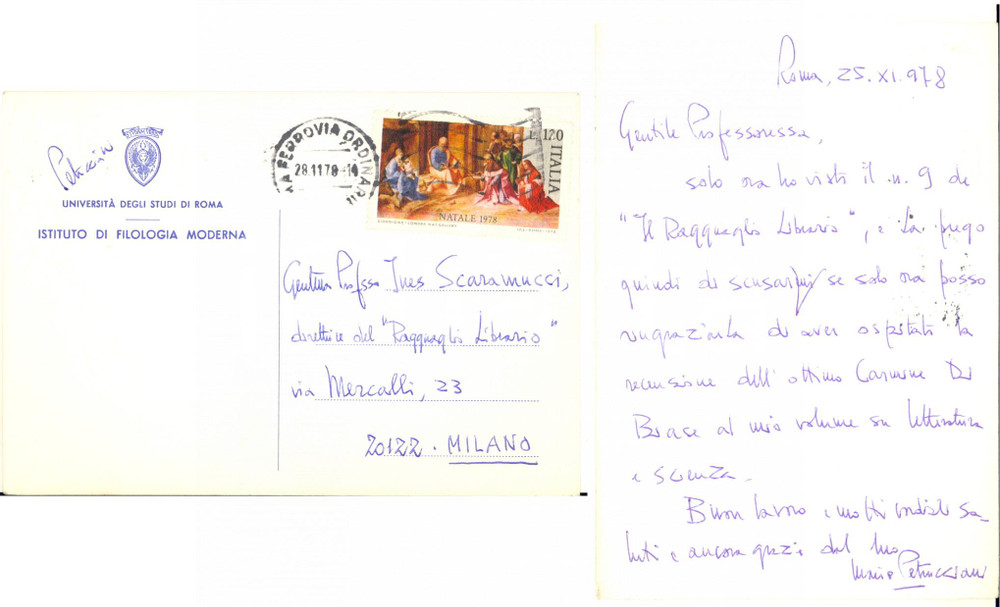 Petruccia
UNIVERSITÀ DEGLI STUDI DI ROMA
ISTITUTO DI FILOLOGIA MODERNA
FERROVIA ORDINARI
28.11.78
L. 120
ITALIA
NATALE 1978
Gentma Profssa Ines Scaramucci,
direttrice del "Ragguaglio Librario"
via Mercalli, 23
20122. MILANO
Roma, 25.XI.978
Gentile Professoressa,
solo ora ho visto il n. 9 de
"Il Ragguaglio Librario", e La prego
quindi di scusarmi se solo ora posso
ringraziarLa di aver ospitato la
recensione dell'ottimo Carmine Di
Biase al mio volume su letteratura
e scienza.
Buon lavoro e molti cordiali sa
luti e ancora grazie dal Suo
Mario Petrucciani